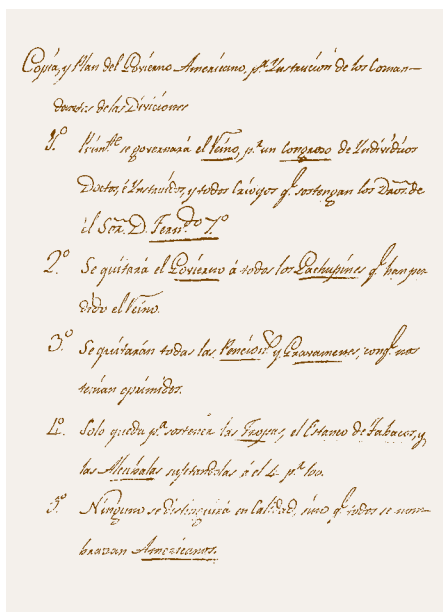 Copia, y Plan del Govierno Americano, pª Ynstrucion de los Coman-
dantes de las Diviciones
1º Primte se governará el Reino, pr un Congreso de Yndividuos
Doctos, é Ynstruidos, y todos Crioyos q. sostengan los Dros. de
el Sor. D. Ferndo 7º
2º Se quitará el Govierno á todos los Gachupines q. han per
dido el Reino.
3º Se quitarán todas las Pencions y Gravamenes, conq. nos
tenian oprimidos.
4º. Solo queda pª sostener las Tropas, el Estanco de Tabacos, y
las Alcabalas sujetandolas á el 4 pr 100.
5º Ninguno se distinguirá en Calidad, sino q. todos se nom-
braran Americanos.